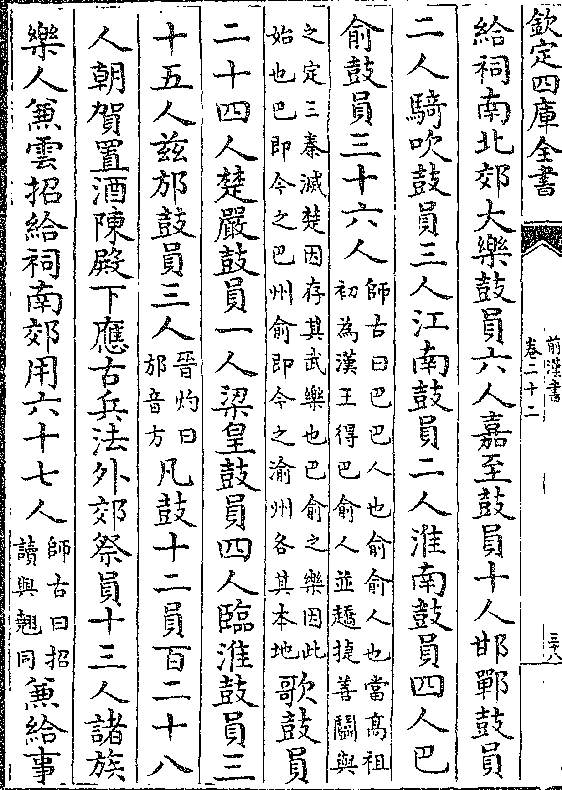 欽定四庫全書
前漢書
卷二十二
三十八
給祠南北郊大樂鼓員六人嘉至鼓員十人邯鄲鼓員
二人騎吹鼓員三人江南鼓員二人淮南鼓員四人巴
俞鼓員三十六人
師古曰巴巴人也俞俞人也當髙祖
初為漢王得巴俞人並趫捷善鬬與
之定三秦滅楚因存其武樂也巴俞之樂因此
始也巴即今之巴州俞即今之渝州各其本地
歌鼓員
二十四人楚嚴鼓員一人梁皇鼓員四人臨淮鼓員三
十五人兹邡鼓員三人
晉灼曰
邡音方
凡鼓十二員百二十八
人朝賀置酒陳殿下應古兵法外郊祭員十三人諸族
樂人兼雲招給祠南郊用六十七人
師古曰招
讀與翹同
兼給事